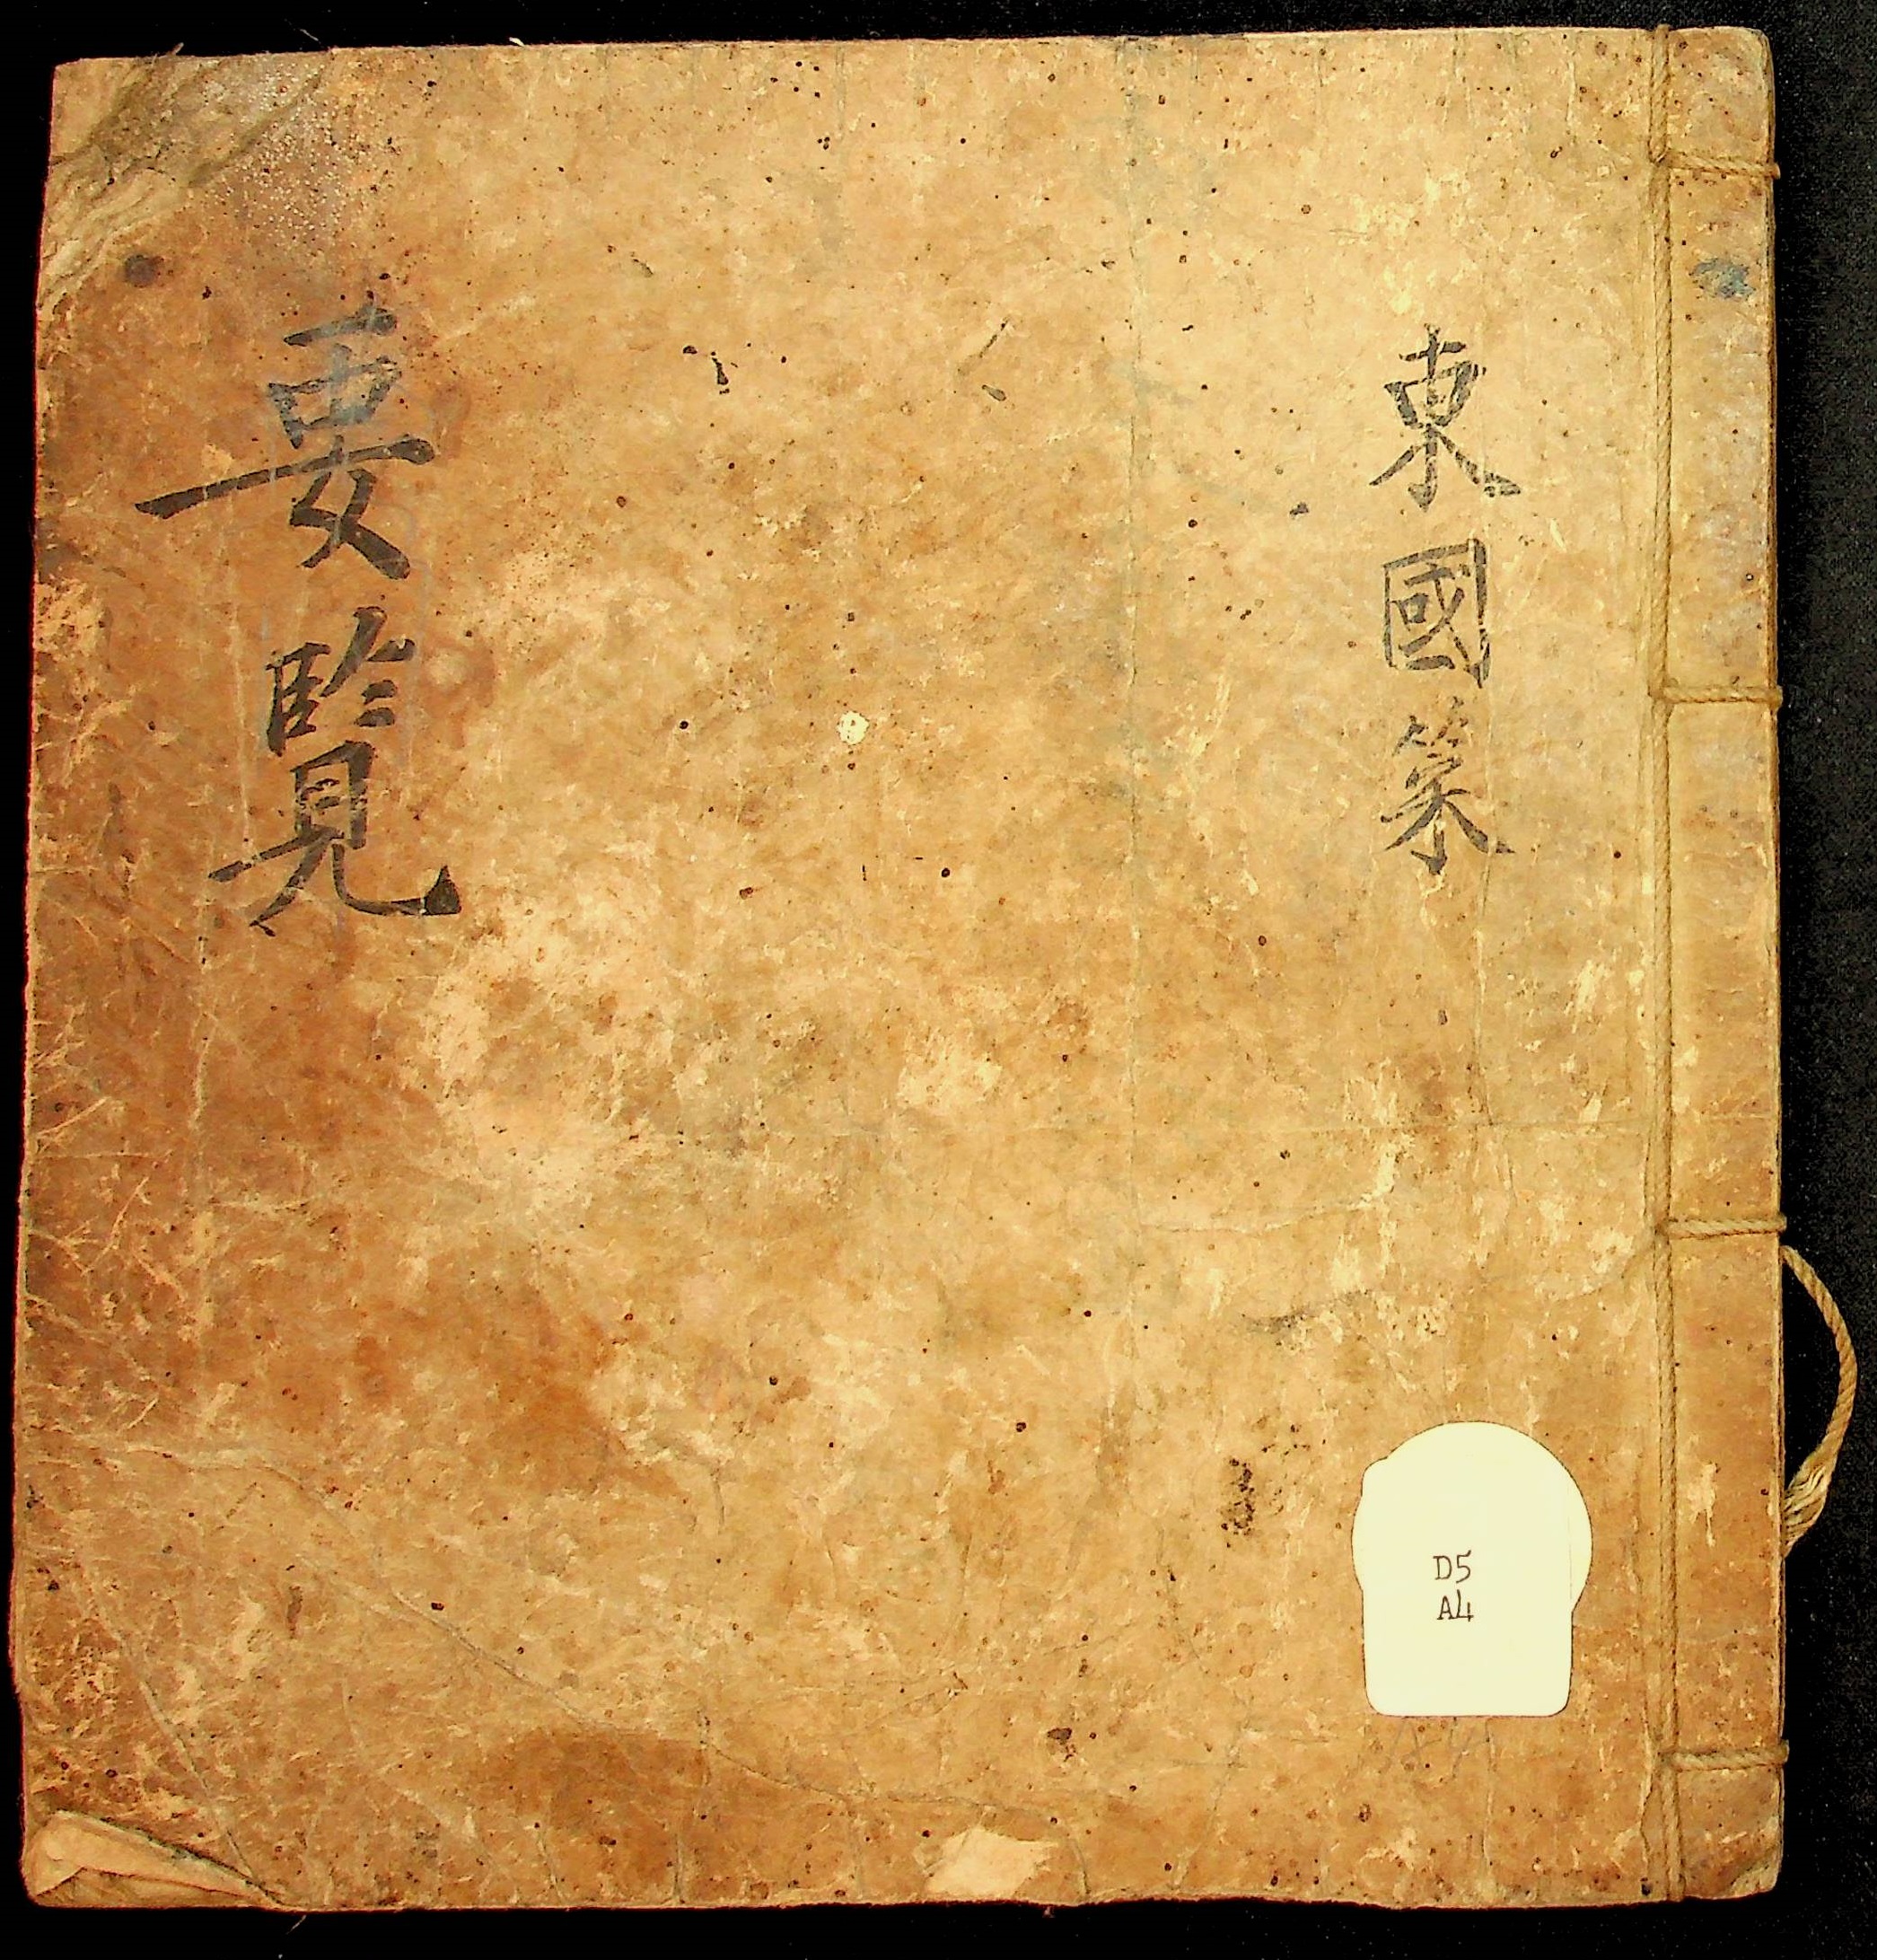 東國策
要覽
D5
A4